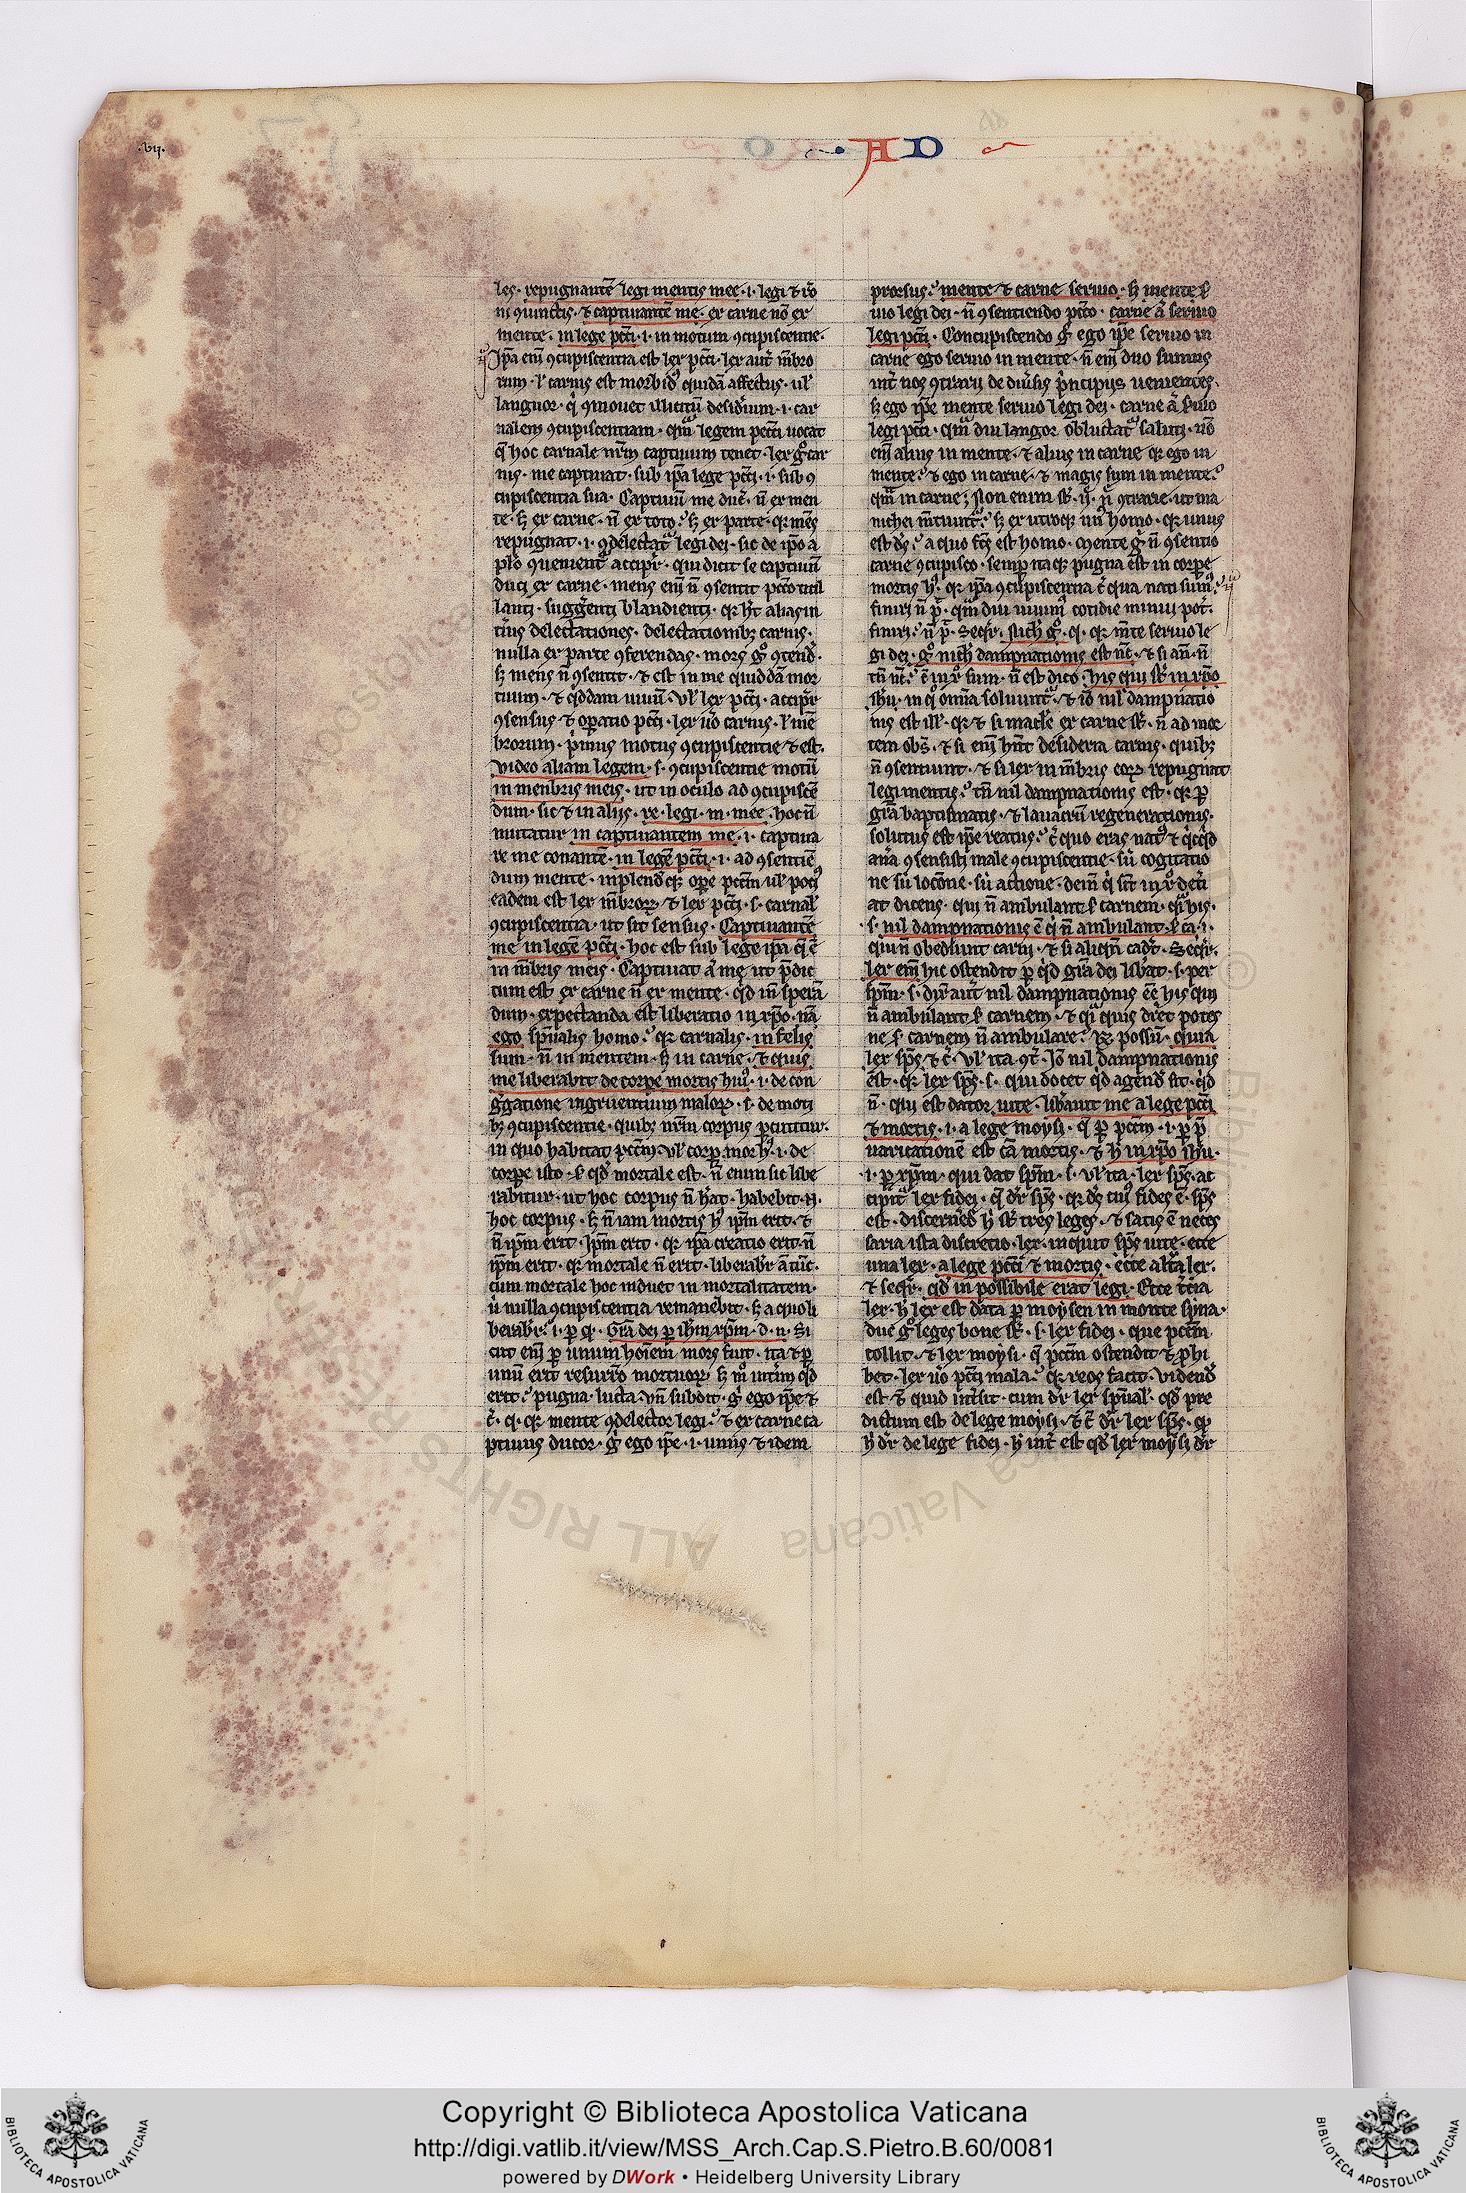 ·vij·
AD
leg̃· repugnantẽ legi mentis mee· i· legi ⁊ rõ
ni ꝯiunctis· ⁊ captiuantẽ me· ex carne nõ ex
mente· in lege pcc̃i· i· in motum ꝯcupiscentie·
ip̃a eni᷒ ꝯcupiscentia est lex pcc̃i· lex aut̃ mẽbro
rum· ł carnis est morbid᷒ quidã affectus· uł
languor· q̇ ꝯmouet illicitũ desid̃ium· i· car
nalem ꝯcupiscentiam· qm̃ legem pecc̃i uocat
q̃ hoc carnale nr̃m captiuum tenet· lex gͦ car
nis· me captiuat· sub ip̃a lege pcc̃i· i· sub ꝯ
cupiscentia sua· Captiuũ me duc̃· ñ ex men
te· sꝫ ex carne· ñ ex toto· sꝫ ex parte· qꝛ mẽs
repugnat· i· ꝯdelectat᷒ legi dei· sic de ip̃o a
plõ ꝯuenient᷒ accipit᷒· qui dicit se captiuũ
duci ex carne· mens eni᷒ ñ ꝯsentit pcc̃o titil
lanti· sugg̃enti blandienti· qꝛ hт̃ alias in
t̃ius delectationes· delectationibꝫ carnis·
nulla ex parte ꝯferendas· mors gͦ ꝯtend̃·
sꝫ mens ñ ꝯsentit· ⁊ est in me quiddã mor
tuum· ⁊ q̇ddam uiuũ· Vł lex pcc̃i· accipit᷒
ꝯsensus ⁊ oꝑatio pcc̃i· lex ũo carnis· ł mẽ
brorum· p̃mus motus ꝯcupiscentie ⁊ est·
video aliam legem· s· ꝯcupiscentie motũ
in menbris meis· ut in oculo ad ꝯcupiscẽ
dum· sic ⁊ in alijs· re· legi· m· mee· hoc ñ
mutatur in captiuantem me· i· captiua
re me conantẽ· in legẽ pcc̃i· i· ad ꝯsentiẽ
dum mente· inplend̃qꝫ oꝑe pcc̃m uł poci᷒
eadem est lex mẽbroꝝ ⁊ lex pcc̃i· s· carnał
ꝯcupiscentia· ut sit sensus· Captiuantẽ
me in legẽ pcc̃i· hoc est sub lege ip̃a q̃ ẽ
in mẽbris meis· Captiuat ã me ut p̃dic
tum est ex carne ñ ex mente· qd̃ iñ sperã
dum· expectanda est liberatio in xp̃o· nã
ego spũalis homo· qꝛ carnalis· in felix
sum· ñ in mentem· sꝫ in carne· ⁊ quis
me liberabit de corꝑe mortis hui᷒· i· de con
g̃gatione ingruentium maloꝝ· s· de moti
bꝫ ꝯcupiscentie· quibꝫ nr̃m corpus ꝑcutitur·
in quo habitat pcc̃m· Vł corꝑe mor· h᷒· i· de
corꝑe isto· s̃ qd̃ mortale est· ñ enim sic libe
rabitur· ut hoc corpus ñ h̃at· habebit· n·
hoc corpus· sꝫ ñ iam mortis h᷒ ip̃m erit· ⁊
ñ ip̃m erit· Ip̃m erit· qꝛ ip̃a creatio erit· ñ
ip̃m erit· qꝛ mortale ñ erit· liberabit᷒ ã tũc·
cum mortale hoc induet in mortalitatem·
ũ nulla ꝯcupiscentia remanebit· sꝫ a quo li
berabit᷒· i· ꝑ q̃· Gr̃a dei ꝑ ih̃m xp̃m· d· n· Si
cut eni᷒ ꝑ unum hoĩem mors fuit· ita ⁊ ꝑ
unũ erit resurr̃o mortuoꝝ· sꝫ m̊ int̃im qd̃
erit· pugna· lucta· vñ subdit· g̃ ego ip̃e ⁊
c̃· q· qꝛ mente ꝯdelector legi· ⁊ ex carne ca
ptiuus ducor· g̃ ego ip̃e· i· unus ⁊ idem
prorsus· mente ⁊ carne seruio· sꝫ mente s̃
uio legi dei· ñ ꝯsentiendo pcc̃o· carne ã seruio
legi pcc̃i· Concupiscendo g̃ ego ip̃e seruio in
carne ego seruio in mente· ñ eni᷒ duo sumus
int̃ nos ꝯtrarij de diũsis p̃ncipijs uenientes·
sꝫ ego ip̃e mente seruio legi dei· carne ã s̃uio
legi pcc̃i· qm̃ diu langor obluctat᷒ saluti· nõ
eni᷒ alius in mente· ⁊ alius in carne qꝛ ego in
mente· ⁊ ego in carne· ⁊ magis sum in mente·
qm̃ in carne; Non enim s̃t· ij· n̄ ꝯtrarie· ut ma
nichei mẽtiunt᷒· sꝫ ex utroqꝫ un᷒ homo· qꝛ unus
est ds̃· a quo fc̃s est homo· Mente g̃ ñ ꝯsentio
carne ꝯcupisco· semꝑ itaqꝫ pugna est in corꝑe
mortis h᷒· qꝛ ip̃a ꝯcupiscentia c̃ qua nati sum᷒·
finiri ñ p̃· qm̃ diu uiuim᷒ cotidie minui pot̃·
finiri· ñ p̃· Seqr̃· Nich̃ gͦ· q· qꝛ m̃te seruio le
gi dei· gͦ nich̃ dampnationis est nc̃· ⁊ si añ· ñ
tñ nc̃· c̃ in xp̃o sum· ñ est dico· his qui s̃t in xp̃o
ih̃u· in q̊ om̃ia soluunt᷒· ⁊ iõ nil dampnatio
nis est ill̃· qꝛ ⁊ si macłe ex carne s̃t· ñ ad mor
tem obs̃· ⁊ si eni᷒ hñt desideria carnis· quibꝫ
ñ ꝯsentiunt· ⁊ si lex in mẽbris eoꝝ repugnat
legi mentis· tñ nil dampnationis est· qꝛ ꝑ
gr̃am baptismatis· ⁊ lauacrũ regenerationis·
solutus est ip̃e reatus· c̃ quo eras nat᷒ ⁊ q̇cqd̃
añа ꝯsensisti male ꝯcupiscentie· siũ cogitatio
ne siũ locõne· siũ actione· dem̃ q̇ s̃it in xp̃o det̃i
at dicens· qui ñ ambulant s̃ carnem· qͣi his·
s· nil dampnationis ẽ q̇ ñ ambulant s̃ ca· i·
qui ñ obediunt carni· ⁊ si aliqñ cad̃t· Seqr̃·
lex eni᷒ hic ostendit ꝑ qd̃ gr̃a dei lib̃at· s· per
sp̃m· s· dix̃· aut̃ nil dampnationis ẽẽ his qui
ñ ambulant s̃ carnem· ⁊ qͣi quis dic̃et potes
ne s̃ carnem ñ ambulare· R̃ possũ· quia
lex sp̃s ⁊ c̃· Vł ita ꝯt̃· Iõ nil dampnationis
est· qꝛ lex sp̃s· s· qui docet qd̃ agend̃ sit· qd̃
ñ· qui est dator uite· lib̃auit me a lege pcc̃i
⁊ mortis· i· a lege moysi· q̃ ꝑ pcc̃m· i· ꝑ p̃
uaricationẽ est cã mortis· ⁊ h̃ in xp̃o ih̃u·
i· ꝑ xp̃m· qui dat sp̃m· s· Vł ita· lex sp̃s· ac
cipit᷒ lex fidei· q̃ dr̃ sp̃s· qꝛ ds̃ cui᷒ fides ẽ· sp̃s
est· discernẽd̃ h̃ s̃t tres leges· ⁊ satis ẽ neces
saria ista discretio· lex· inquit sp̃s uite· ecce
una lex· a lege pcc̃i ⁊ mortis· ecce alt̃a lex·
⁊ seqr̃· qd̃ in possibile erat legi· Ecce t̃cia
lex· h̃ lex est data ꝑ moysen in monte syna·
due gͦ leges bone s̃t· s· lex fidei· que pcc̃m
tollit· ⁊ lex moysi· q̃ pcc̃m ostendit ⁊ ꝓhi
bet· lex ũo pcc̃i mala· qꝛ reos facit· Videnđ
est ⁊ quid int̃sit· cum dr̃ lex spũał· qd̃ pre
dictum est de lege moysi· ⁊ c̃ dr̃ lex sp̃s· ꝙ
h̃ dr̃ de lege fidei· h̃ int̃ est qd̃ lex moysi dr̃
Copyright © Biblioteca Apostolica Vaticana
http://digi.vatlib.it/view/MSS_Arch.Cap.S.Pietro.B.60/0081
powered by DWork • Heidelberg University Library